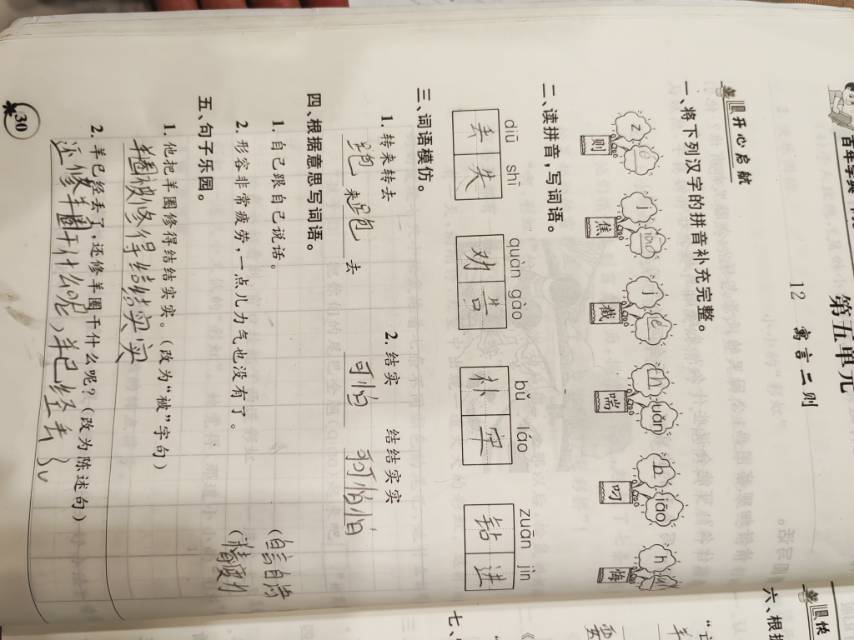 第五单元
12 寓言二则
开心启航
一、将下列汉字的拼音补充完整。
z é j iāo j é ch uǎn d iāo h
则 焦 截 喘 叼 悔
二、读拼音,写词语。
diū shī quàn gào bǔ láo zuān jìn
丢失 劝告 补牢 钻进
三、词语模仿。
1. 转来转去 2. 结实 结结实实
跑来跑去 可怕 可可怕怕
四、根据意思写词语。
1. 自己跟自己说话。 (自言自语)
2. 形容非常疲劳,一点儿力气也没有了。
五、句子乐园。
1. 他把羊圈修得结结实实。(改为“被”字句)
羊圈被修得结结实实
2. 羊已经丢了,还修羊圈干什么呢?(改为陈述句)
还修羊圈干什么呢,羊已经丢了。
30
六、根据
七、